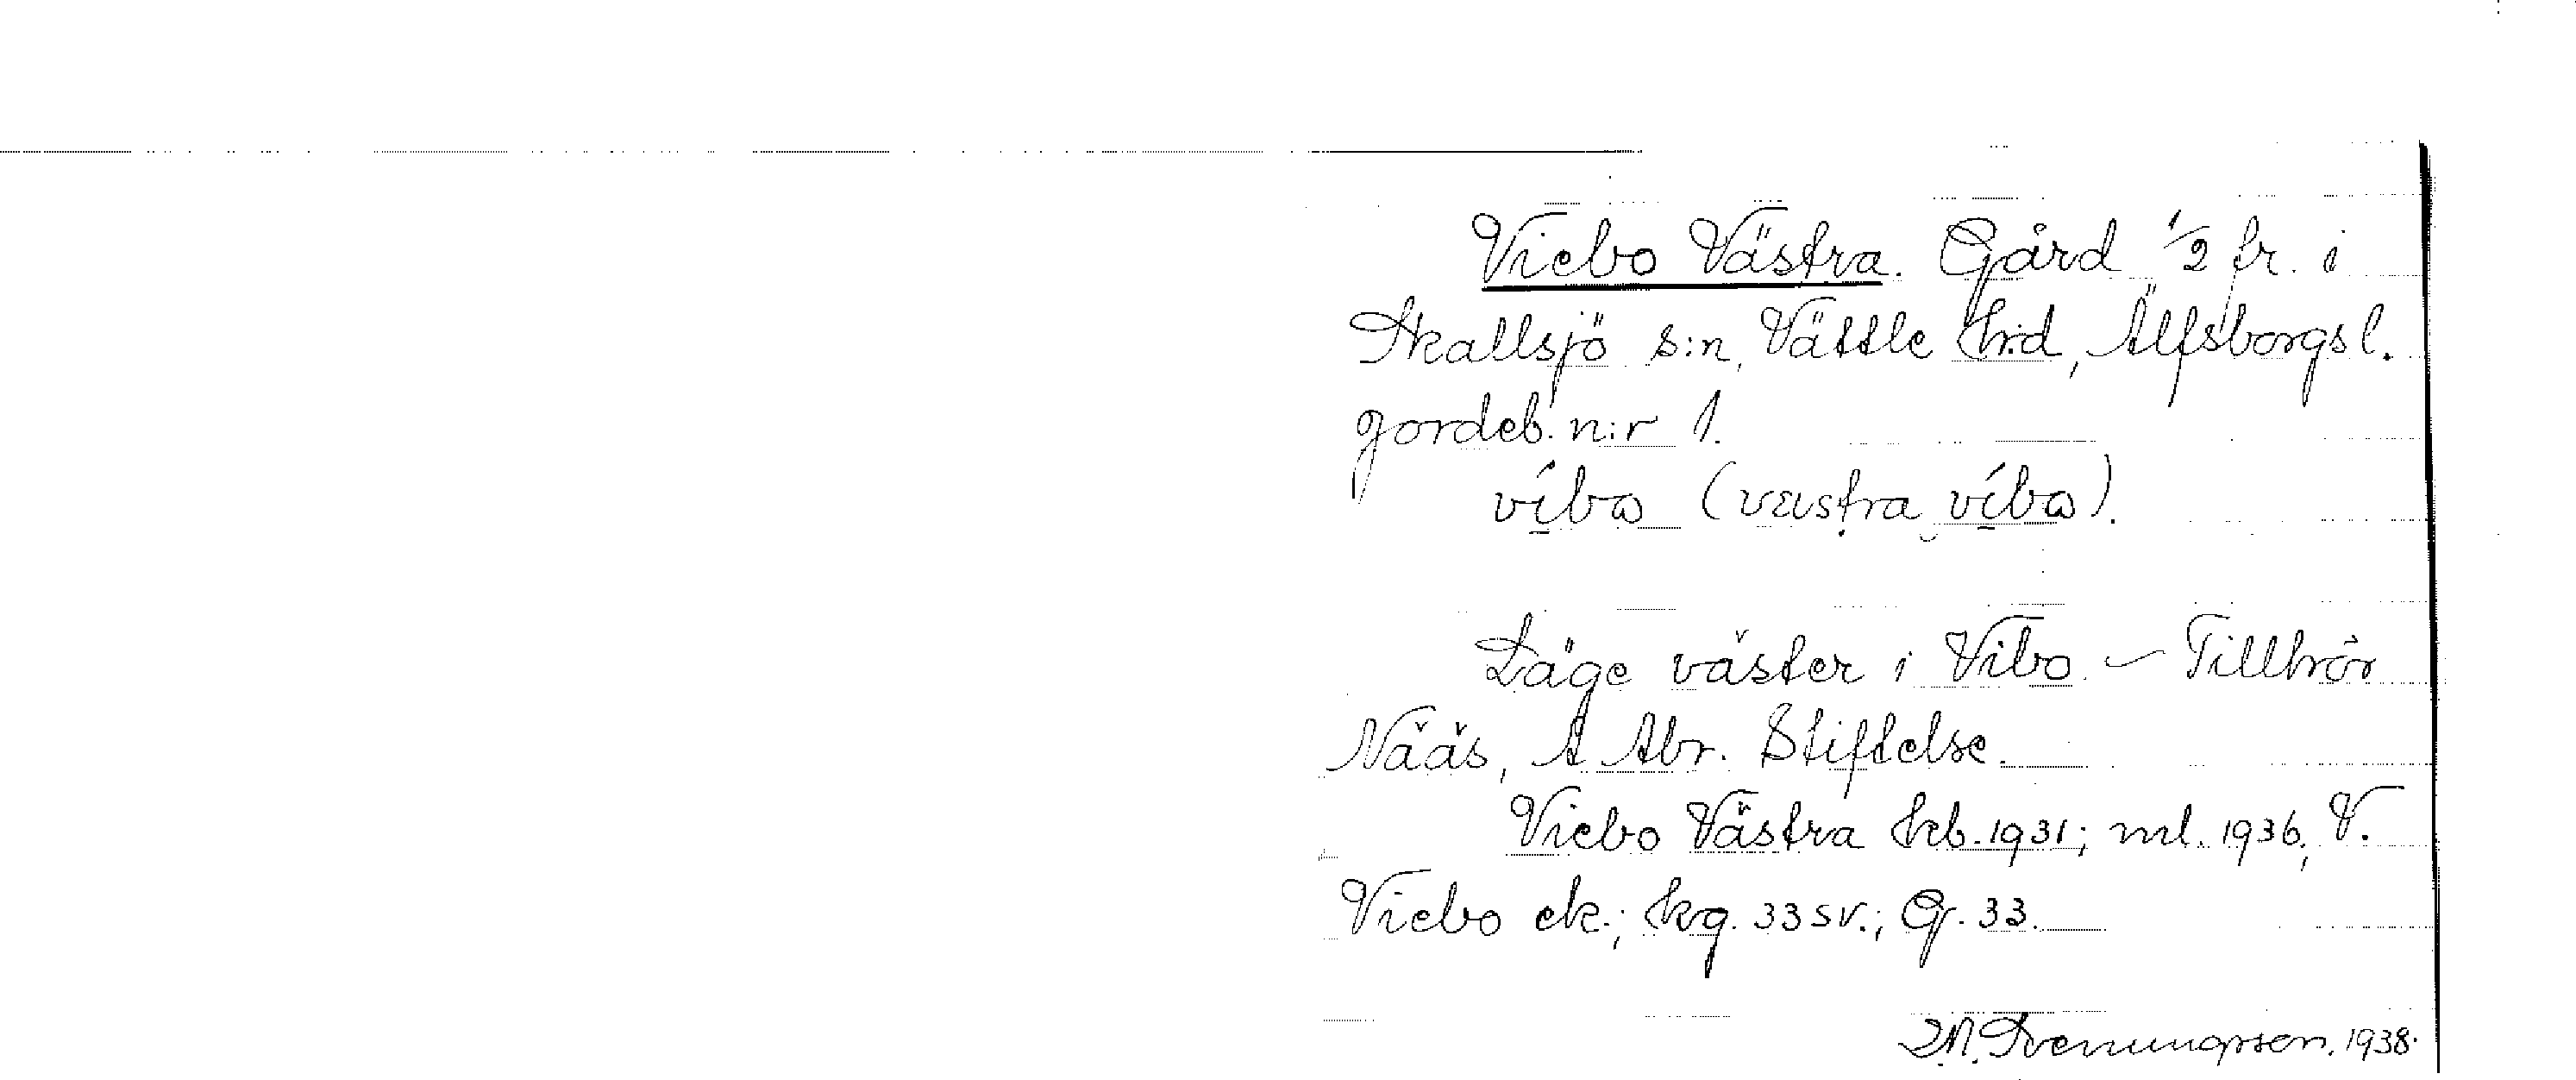 Viebo Västra. Gård 1/2 fr. i
Skallsjö s:n, Vättle h:d, Älfsborgs l.
Jordeb. n:r 1.
víbɷ (væstra víbɷ).
Läge väster i Vibo. – Tillhör
Nääs, A Abr. Stiftelse.
Viebo Västra hb. 1931; ml. 1936, V.
Viebo ek.; hkg. 33 sv.; G. 33.
1938.